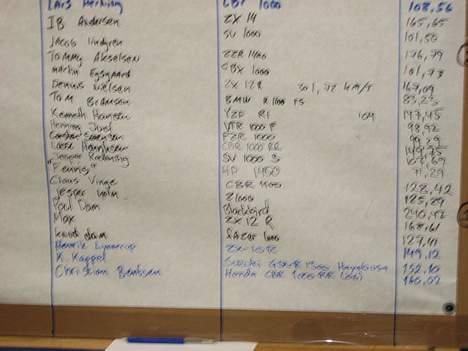 Lars Herning CBF 1000 108,56
IB Andersen ZX 14 165,65
Jacob Lindgren SV 1000 101,50
Tommy Akselsen ZZR 1100 176,79
Martin CBX 1000 101,73
Dennis Nielsen ZX 12R 167,09
Tom Bramsen BMW K 1100 RS 83,23
Kenneth Hansen YZF R1 147,45
Henning Juel VTR 1000 F 98,92
FZR 1000
Lasse Henriksen CBR 1000 RR
Jesper SV 1000 S
"Fennis" HP 1450 71,29
Claus Vinge CBR 1100 128,42
Jesper Holm Z1000 125,29
Poul Dam Blackbird
Max ZX 12 R 168,61
Knud Dam Fazer 1000 127,41
Henrik ZX-10R 149,12
K. Kappel Suzuki GSXR 1300 Hayabusa 152,10
Christian Bentsen Honda CBR 1000 RR 160,02